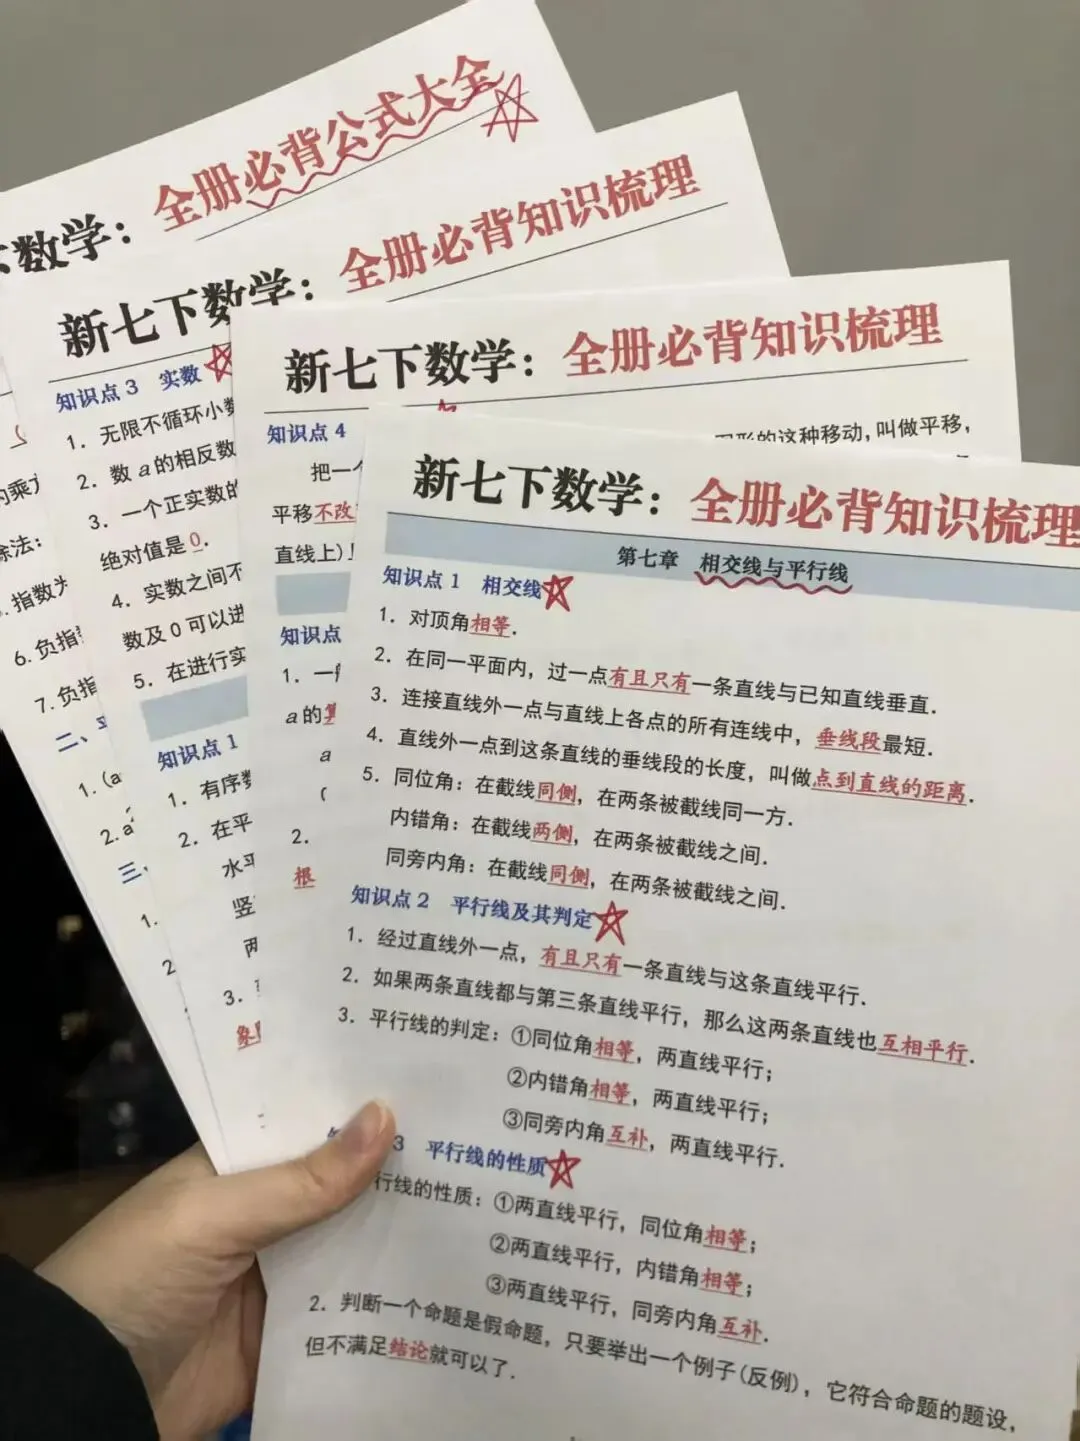 数学：全册必背公式大全
的乘方
除法：
指数为
6.负指
7.负指
二、
1.（a
2.a
三、
1.
2
新七下数学：全册必背知识梳理
知识点3 实数
1．无限不循环小数
2．数a的相反数
3．一个正实数的
绝对值是0．
4．实数之间不
数及0可以进
5．在进行实
知识点1
1．有序数
2．在平
水平
竖
两
3．
象
新七下数学：全册必背知识梳理
知识点4
图形的这种移动，叫做平移，
把一个
平移不改
直线上）
知识点
1．一
a的算
a
(
2．
根
新七下数学：全册必背知识梳理
第七章 相交线与平行线
知识点1 相交线
1．对顶角相等．
2．在同一平面内，过一点有且只有一条直线与已知直线垂直．
3．连接直线外一点与直线上各点的所有连线中，垂线段最短．
4．直线外一点到这条直线的垂线段的长度，叫做点到直线的距离．
5．同位角：在截线同侧，在两条被截线同一方．
内错角：在截线两侧，在两条被截线之间．
同旁内角：在截线同侧，在两条被截线之间．
知识点2 平行线及其判定
1．经过直线外一点，有且只有一条直线与这条直线平行．
2．如果两条直线都与第三条直线平行，那么这两条直线也互相平行．
3．平行线的判定：①同位角相等，两直线平行；
②内错角相等，两直线平行；
③同旁内角互补，两直线平行．
3 平行线的性质
行线的性质：①两直线平行，同位角相等；
②两直线平行，内错角相等；
③两直线平行，同旁内角互补．
2．判断一个命题是假命题，只要举出一个例子（反例），它符合命题的题设，
但不满足结论就可以了．